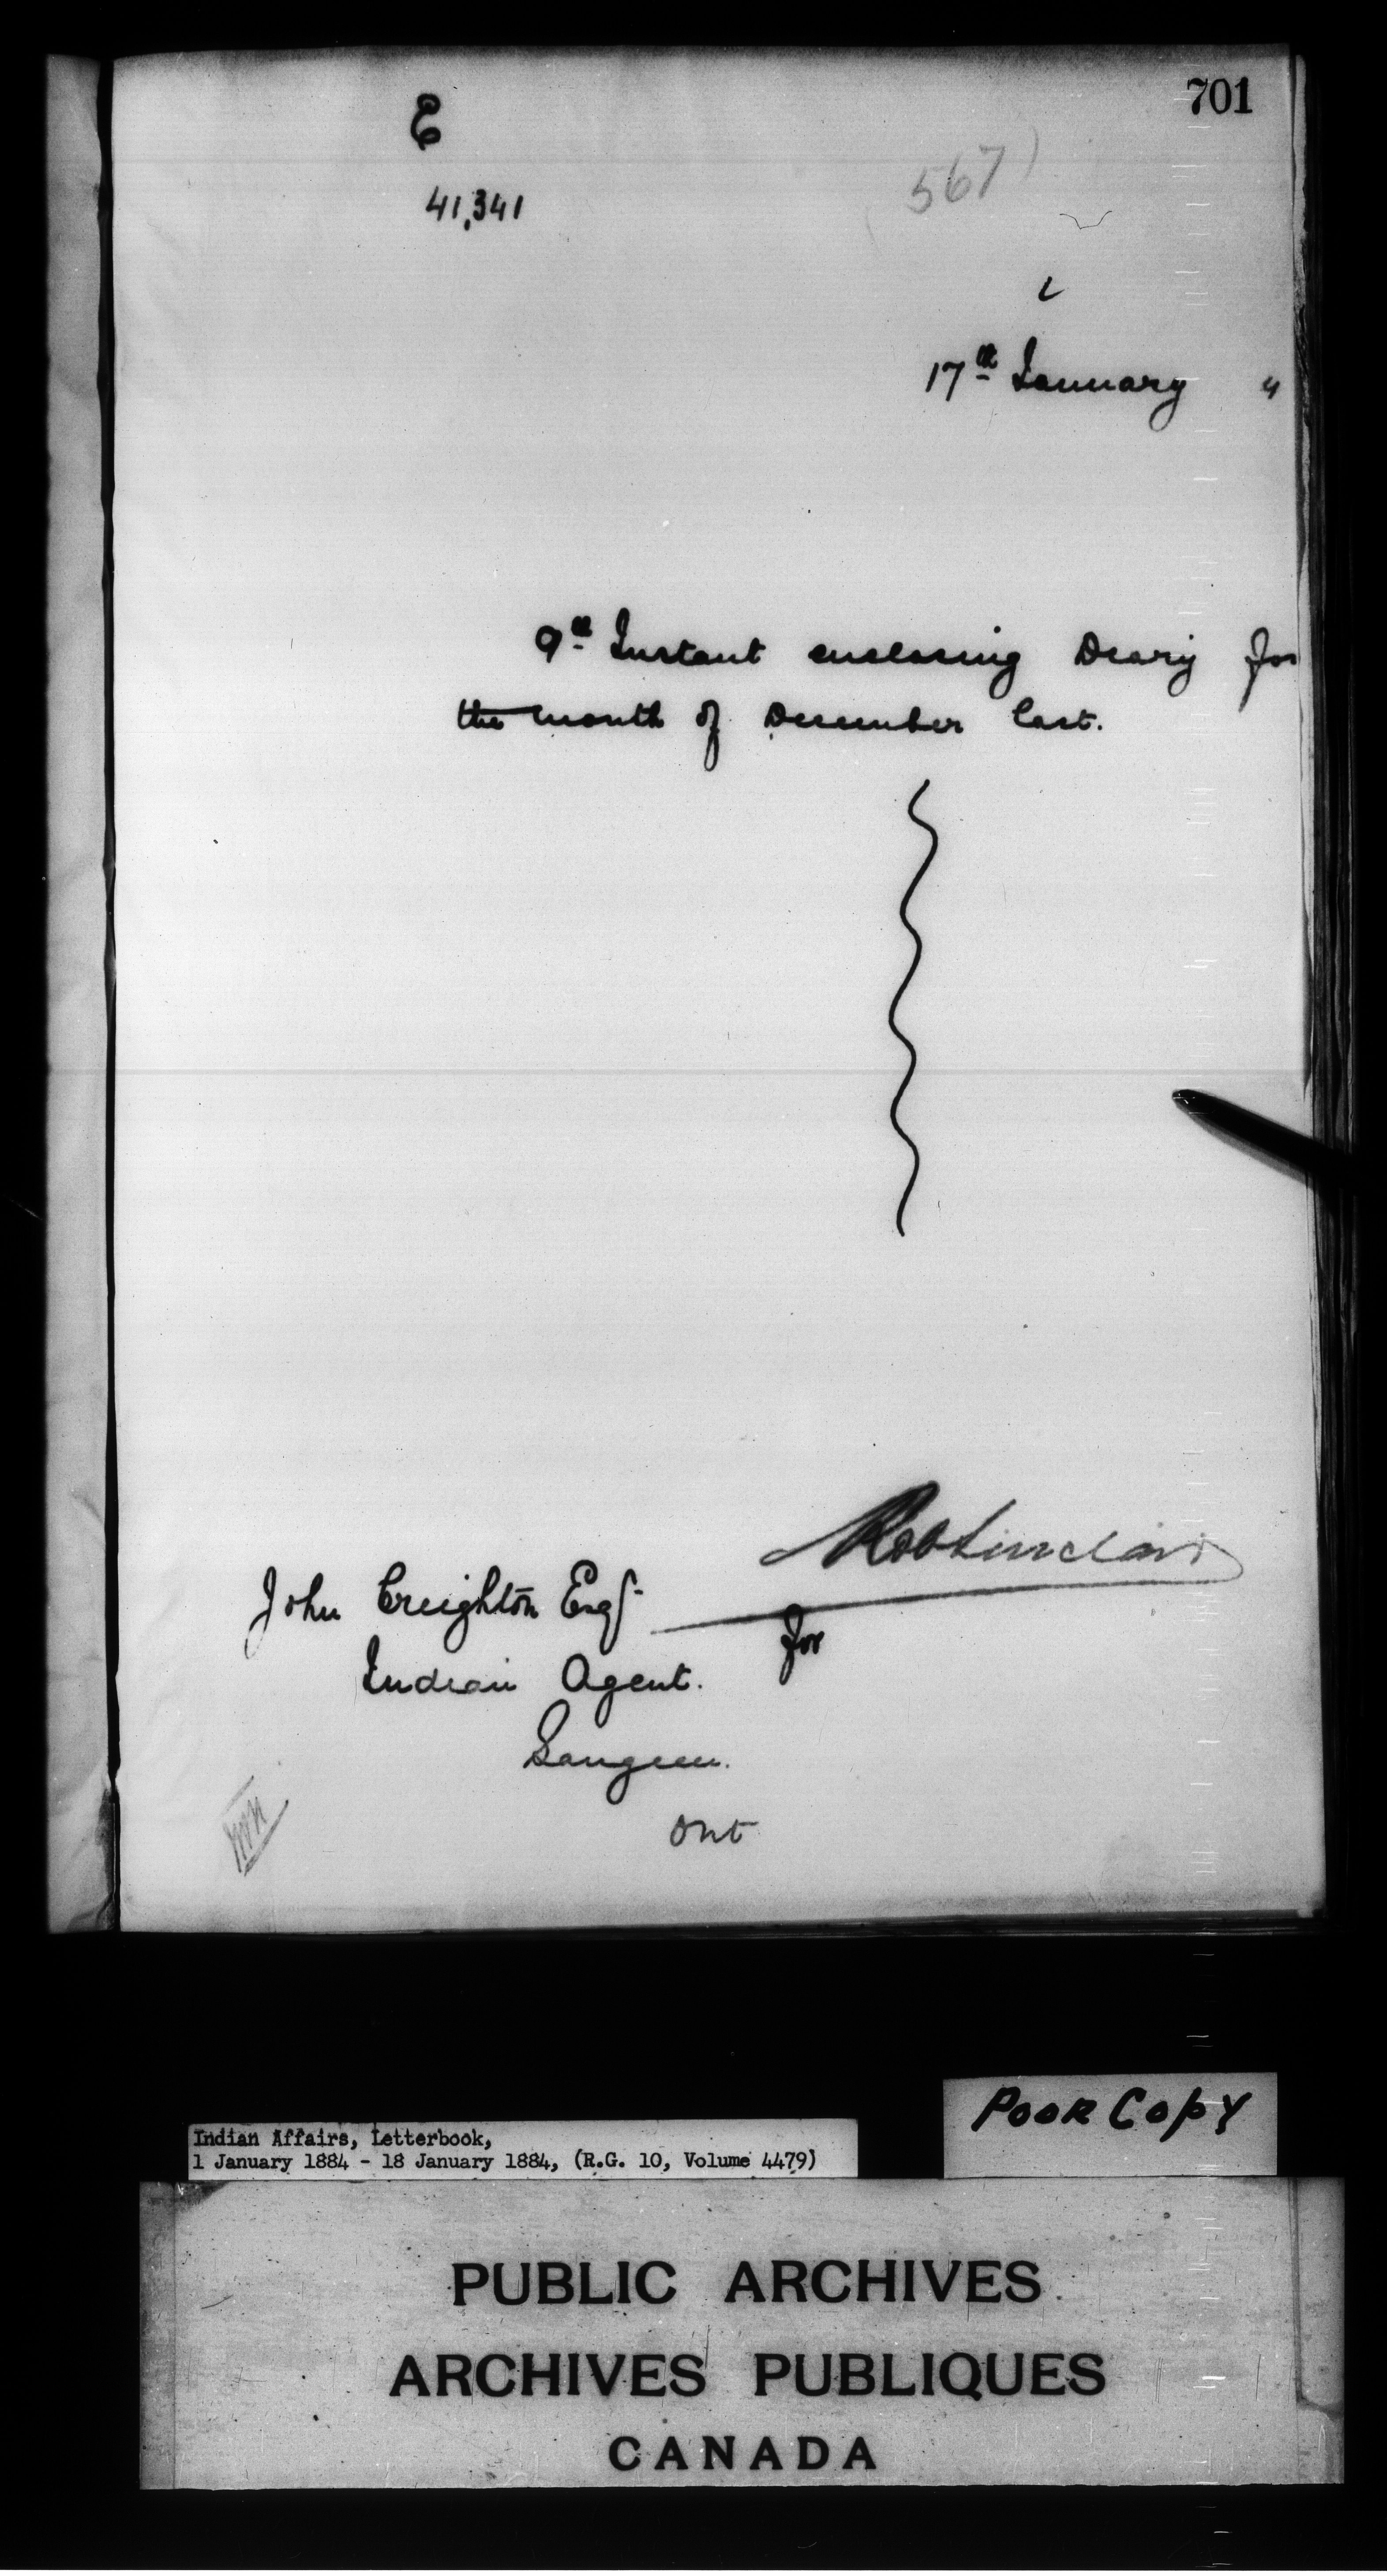 701
E
41,341
567
17th January 4
9th Instant enclosing Diary for
the month of December last.
Rob Sinclair
John Creighton Esq
for
Indian Agent.
Saugeen.
Ont
Poor Copy
Indian Affairs, Letterbook,
1 January 1884 - 18 January 1884, (R.G. 10, Volume 4479)
PUBLIC ARCHIVES
ARCHIVES PUBLIQUES
CANADA